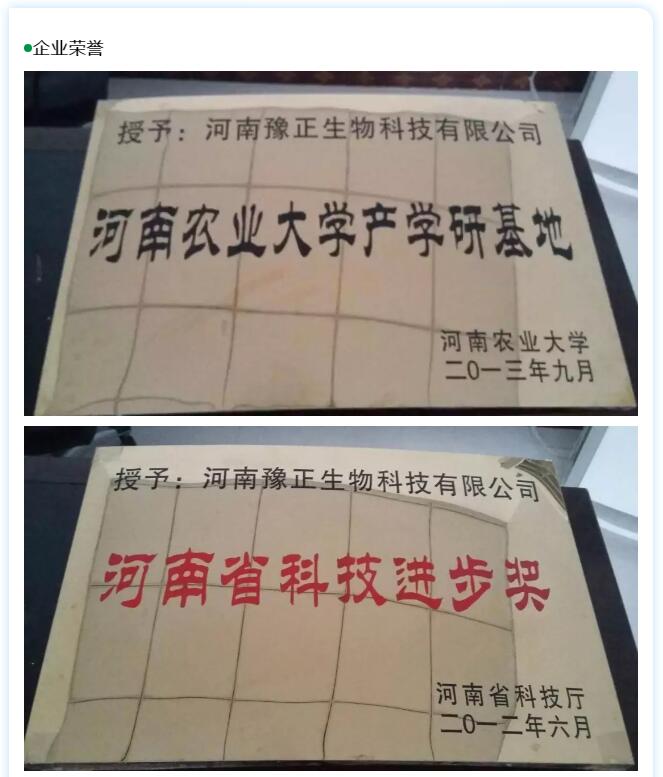 企业荣誉
授予：河南豫正生物科技有限公司
河南农业大学产学研基地
河南农业大学
二0一三年九月
授予：河南豫正生物科技有限公司
河南省科技进步奖
河南省科技厅
二0一二年六月